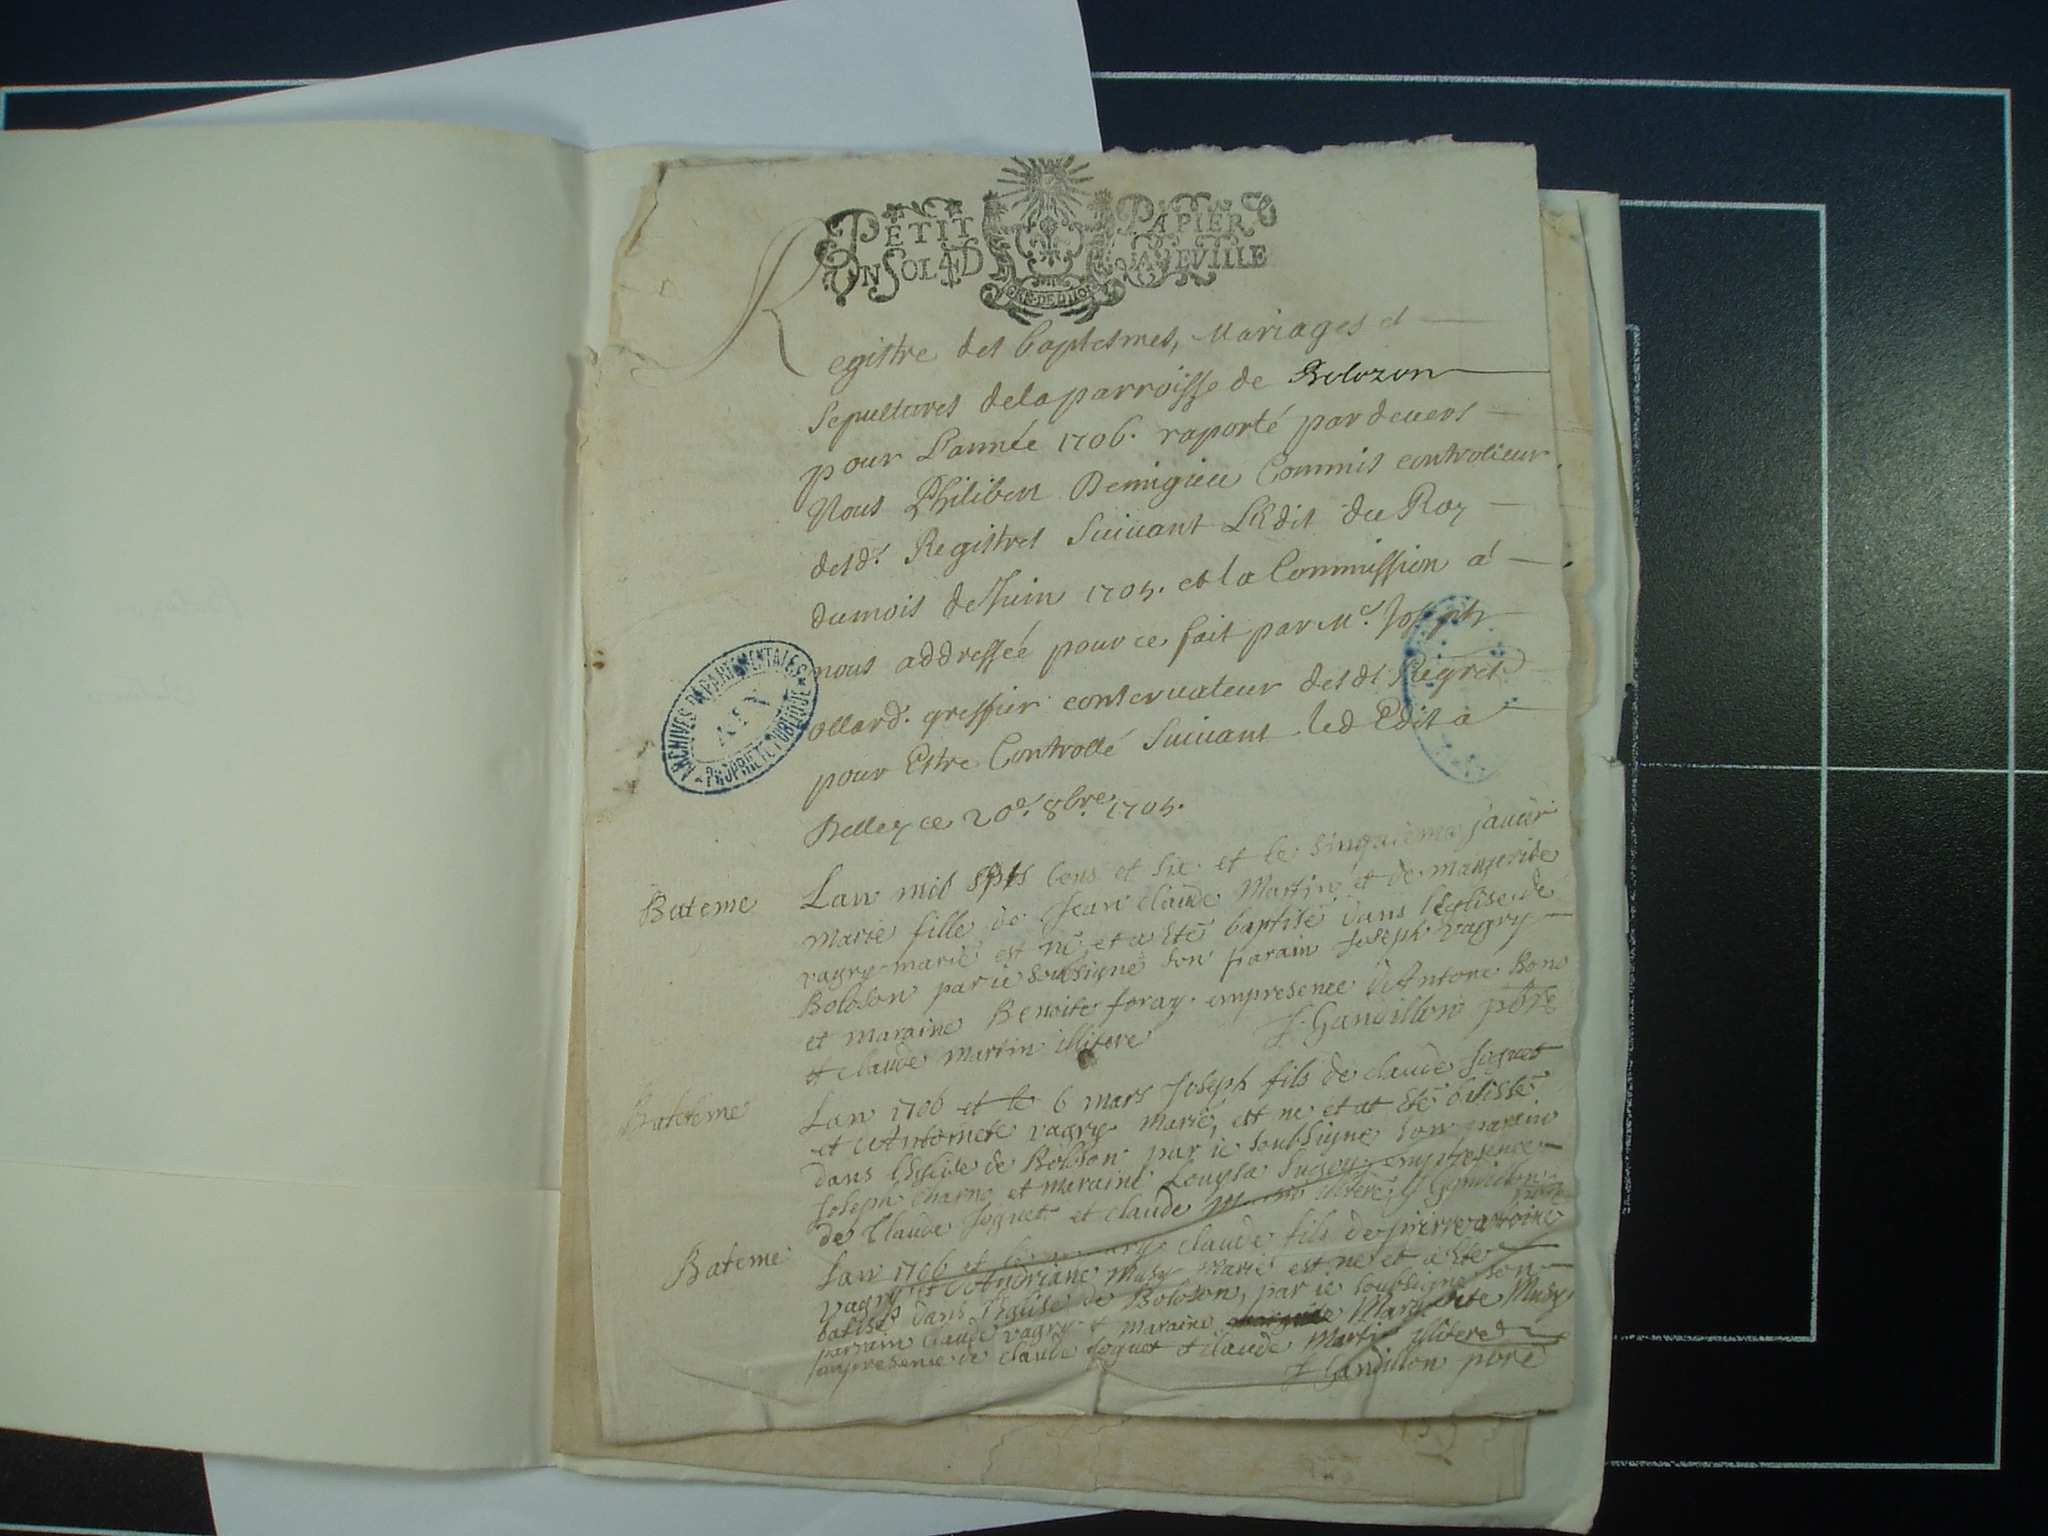 PETIT PAPIER
UN SOL 4 D LA FEVILLE
Registre des baptesmes, Mariages et
Sepultures de la parroisse de Bolozon
pour L'année 1706. raporté pardevers
Nous Philibert Demigieu Commis controlleur
desd. Registres suivant L'Edit du Roy
du mois de Juin 1705. et la Commission a
nous addressée pour ce fait par Me. Joseph
ollard. greffier conservateur desds Regres
pour Estre Controllé suivant led Edit a
Belley ce 20e. 8bre. 1705.
ARCHIVES DEPARTEMENTALES
AIN
PROPRIETE PUBLIQUE
Bateme
Lan mil sept Cens et six et le sinquieme janvier
Marie fille de Jean Claude Martin et de marguerite
vagry marié est né et a Eté baptisé dans l'Eglise de
Boloson par ie soubsigné son parain Joseph vagry
et maraine Benoite foray. empresence d'Antone Bono
et claude martin illitere J. Gandillon pbre
Bateme
Lan 1706 et le 6 mars Joseph fils de claude Joguet
et Antoinete vagry marié, est ne et at eté batissé
dans l'Eglise de Boloson par ie soubsigne son parain
Joseph Charno et maraine Louysa empresence
de Claude Joguet et claude illitere J Gandillon
pbre
Bateme
Lan 1706 et claude fils de pierre antoine
vagry et Andriane Musy marié est ne et a ete
batisé dans l'Eglise de Boloson, par ie soubsigne son
parrain claude vagry et maraine Marguerite Musy
empresence de claude Joguet et claude Martin illitere
J Gandillon pbre